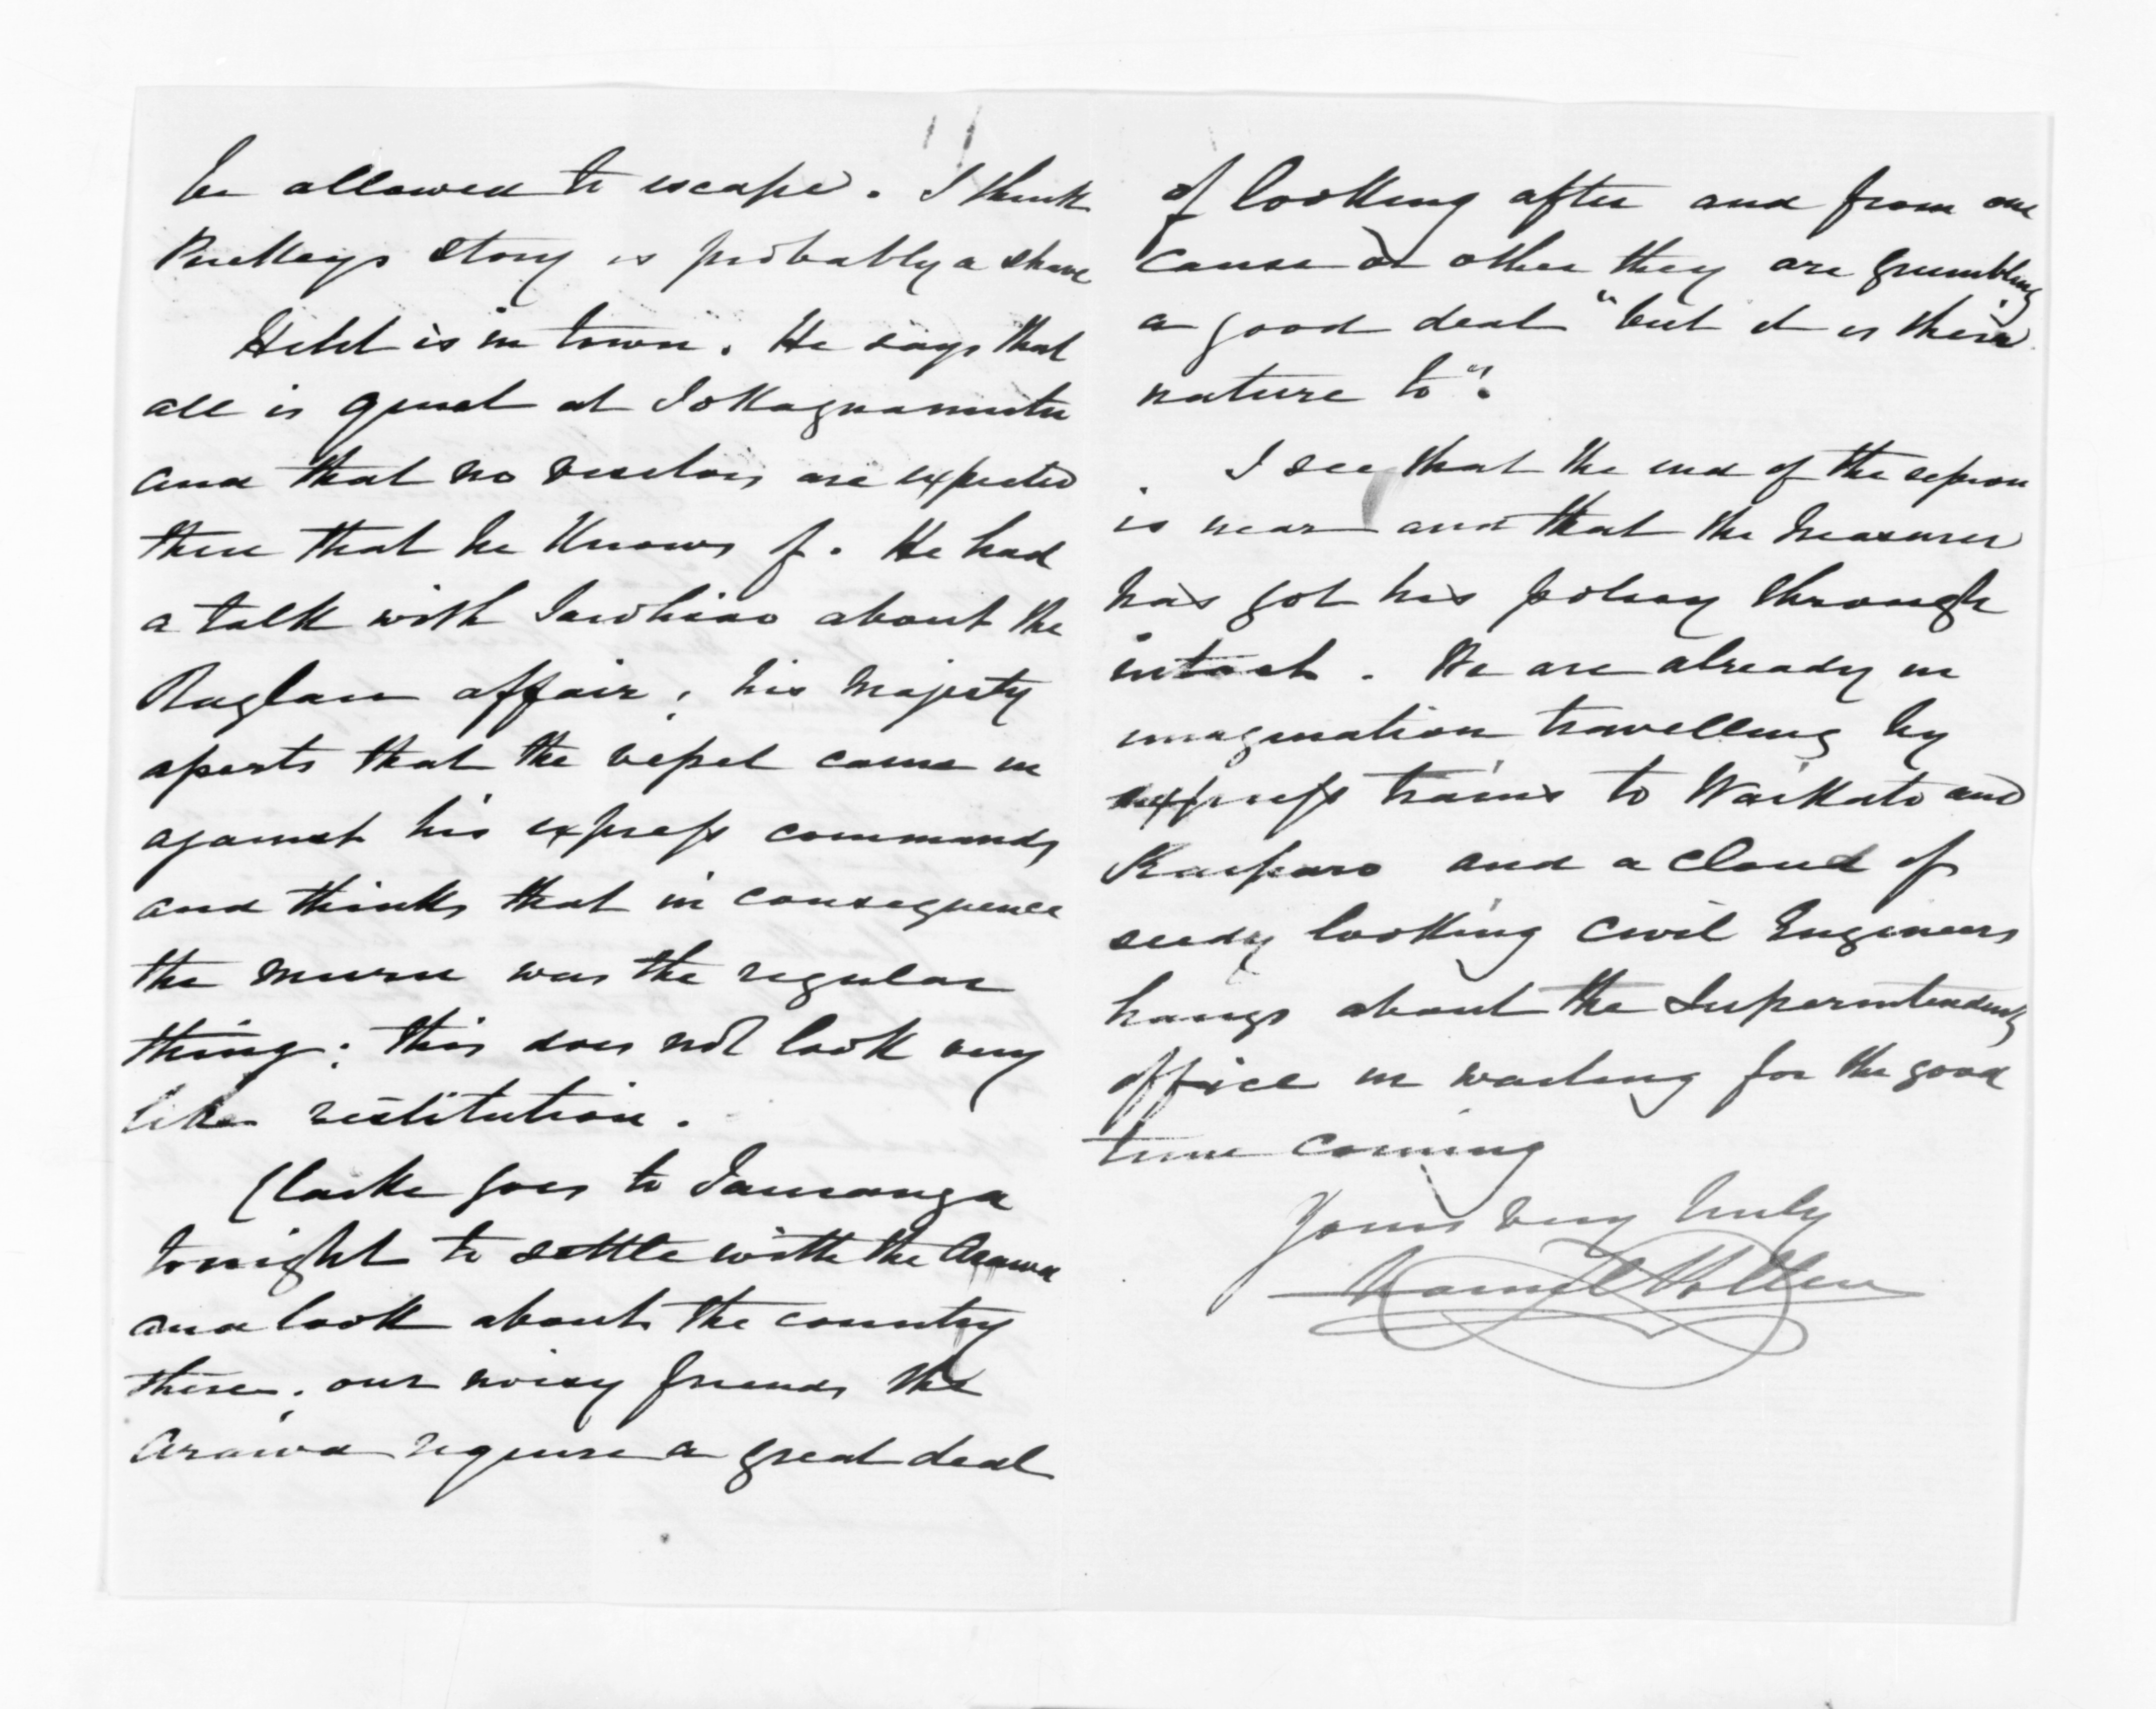 be allowed to escape. I think
Puckeys story is probably a shave
is in town. He says that
all is quiet at Tokaguamutu
and that no visitors are expected
there that he knows of. He had
a talk with Tawhiao about the
Raglan affair; his Majesty
asserts that the vessel came in
against his express commands
and thinks that in consequence
the muru was the regular
thing; this does not look very
like restitution.
Clarke goes to Tauranga
tonight to settle with the Arawa
and look about the country
there; our noisy friends the
Arawa require a great deal
of looking after and from one
cause or other they are grumbling
a good deal "but it is their
nature to".
I see that the end of the session
is near and that the Treasurer
has got his policy through
intact. We are already in
imagination travelling by
express trains to Waikato and
Kaipara and a cloud of
seedy looking Civil Engineers
hangs about the Superintendents
office in waiting for the good
time coming
Yours very truly
Daniel Pollen